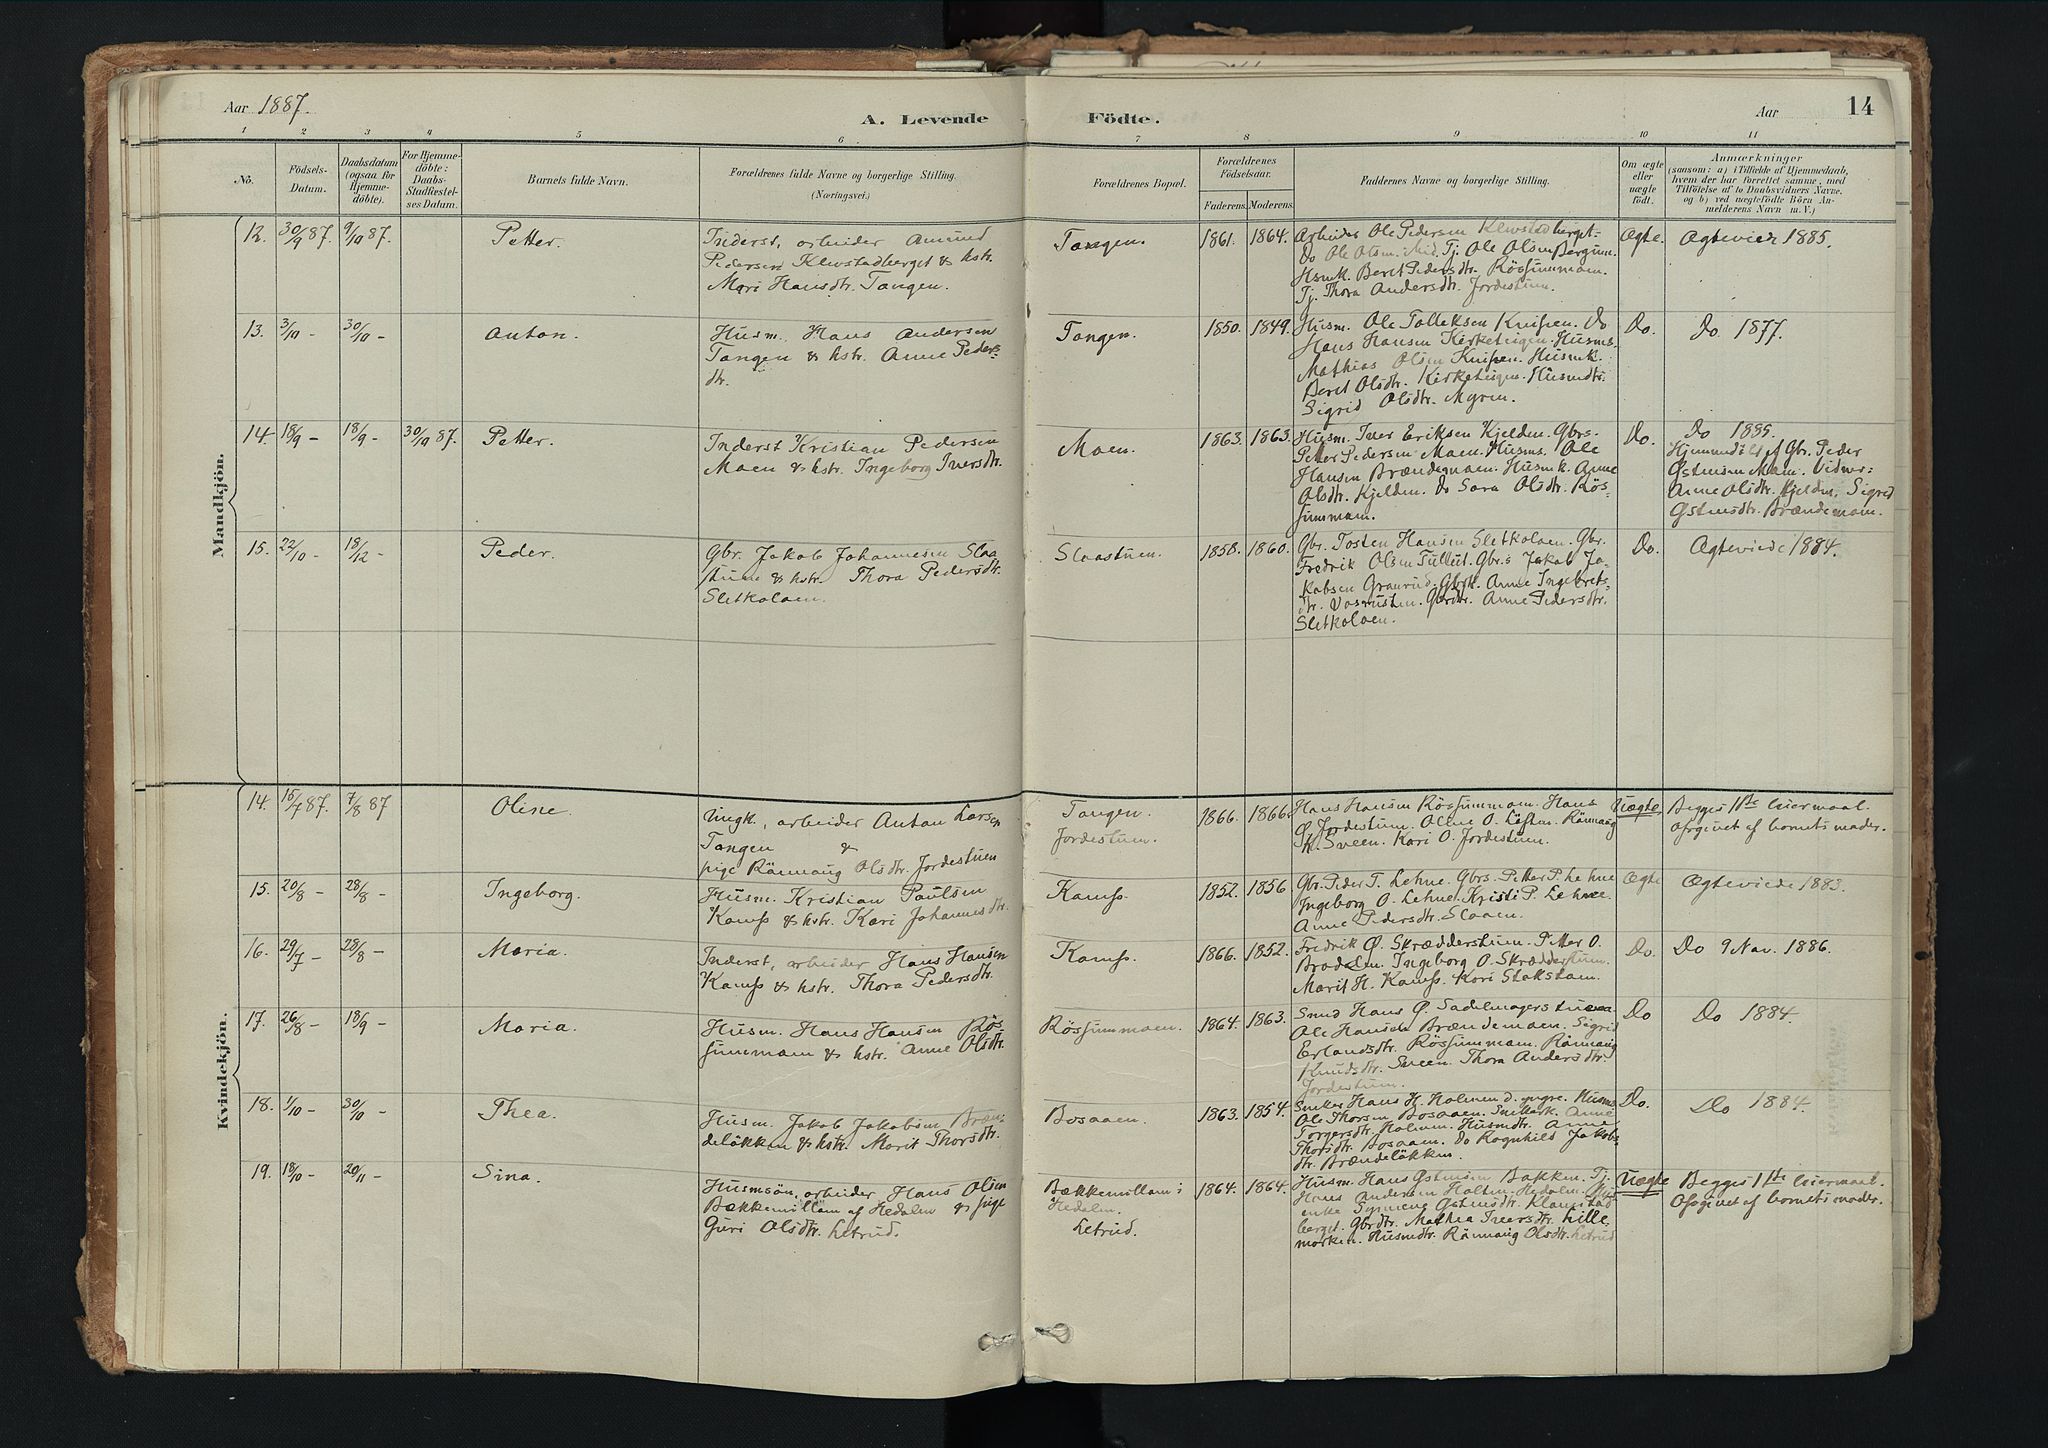 Aar 1887.
A. Levende Födte.
Aar
14
1 2 3 4 5 6 7 8 9 10 11
No.
Födsels-Datum.
Daabsdatum (ogsaa for Hjemme-döbte).
For Hjemme-döbte: Daabs-Stadfæstel-ses Datum.
Barnets fulde Navn.
Forældrenes fulde Navne og borgerlige Stilling.
(Næringsvei.)
Forældrenes Bopæl.
Forældrenes Födselsaar.
Faderens. Moderens.
Faddernes Navne og borgerlige Stilling.
Om ægte eller uægte födt.
Anmærkninger
(sansom: a) i Tilfælde af Hjemmedaab,
hvem der har forrettet samme, med
Tilföielse af to Daabsvidners Navne,
og b) ved uægtefödte Börn An-
melderens Navn m. V.)
Mandkjön.
12. 30/9 87. 9/10 87. Petter.
Inderst, arbeider Amund
Pedersen Klevstadberget & hstr.
Mari Hansdtr. Tangen.
Tangen. 1861. 1864.
Arbeider Ole Pedersen Klevstadberget.
Do Ole Olsen Tj. Ole Olsen
Hsmk. Beret Pedersdtr. Rössummoen.
Tj. Thora Andersdtr. Jordestuen.
Ægte. Ægteviede 1885.
13. 3/10 - 30/10 - Anton.
Husm. Hans Andersen
Tangen & hstr. Anne Peders-
dtr.
Tangen. 1850. 1849.
Husm. Ole Tolleksen Knipen. Do
Hans Hansen Kirketeigen. Husms.
Mathias Olsen Knipen. Husmk.
Beret Olsdtr. Kirketeigen. Husmdtr.
Sigrid Olsdtr. Myren.
Do. Do 1877.
14. 18/9 - 18/9 - 30/10 87. Petter.
Inderst Kristian Pedersen
Moen & hstr. Ingeborg Iversdtr.
Moen. 1863. 1863.
Husm. Iver Eriksen Kjelden. Gbrs.
Petter Pedersen Moen. Husms. Ole
Hansen Brændemoen. Husmk. Anne
Olsdtr. Kjelden. Do Sara Olsdtr. Rös-
summoen.
Do. Do 1885.
Hjemmedöbt af Gbr. Peder
Østensen Moen. Vidner:
Anne Olsdtr. Kjelden, Sigrid
Østensdtr. Brændemoen.
15. 22/10 - 18/12 - Peder.
Gbr. Jakob Johannesen Slaa-
stuen & hstr. Thora Pedersdtr.
Sletkoloen.
Slaastuen. 1858. 1860.
Gbr. Tosten Hansen Sletkoloen. Gbr.
Fredrik Olsen Tullut. Gbrs Jakob Ja-
kobsen Granrud. Gbrk. Anne Ingebrets-
dtr. Gbrdtr. Anne Pedersdtr.
Sletkoloen.
Do. Ægteviede 1884.
Kvindekjön.
14. 15/7 87. 7/8 87 Oline.
Ungk., arbeider Anton Larsen
Tangen &
pige Rönnaug Olsdtr. Jordestuen
Tangen.
Jordestuen.
1866. 1866.
Hans Hansen Rössummoen. Hans
Ø. Jordestuen. Oline O. Löften. Rönnaug
K. Sveen. Kari O. Jordestuen.
Uægte. Begges 1ste leiermaal.
Opgivet af barnets moder.
15. 20/8 - 28/8 - Ingeborg.
Husm. Kristian Paulsen
Kamp & hstr. Kari Johannesdtr.
Kamp. 1852. 1856
Gbr. Peder T. Lehne. Gbrs. Petter P. Lehne
Ingeborg O. Lehne. Kristi P. Lehne.
Anne Pedersdtr. Slaaen.
Ægte Ægteviede 1883.
16. 29/7 - 28/8 - Maria.
Inderst, arbeider Hans Hansen
Kamp & hstr. Thora Pedersdtr.
Kamp. 1866. 1852.
Fredrik Ø. Skrædderstuen. Petter O.
Ingeborg O. Skrædderstuen.
Marit H. Kamp. Kari
Do. Do 9 Nov. 1886.
17. 26/8 - 18/9 - Maria.
Husm. Hans Hansen Rös-
summoen & hstr. Anne Olsdtr.
Rössummoen. 1864. 1863.
Smed Hans Ø. Sadelmagerstuen
Ole Hansen Brændemoen. Sigrid
Erlandsdtr. Rössummoen. Rönnaug
Knudsdtr. Sveen. Thora Andersdtr.
Jordestuen.
Do Do 1884.
18. 1/10 - 30/10 - Thea.
Husm. Jakob Jakobsen Bræn-
delökken & hstr. Marit Thorsdtr.
Bosaaen. 1863. 1854.
Snekker Hans H. Holmen d. yngre. Husms.
Ole Thorsen Bosaaen. Snekkerk. Anne
Torgersdtr. Holmen. Husmdtr. Anne
Thorsdtr. Bosaaen. Do Ragnhild Jakobs-
dtr. Brændelökken.
Do. Do 1884.
19. 18/10 - 20/11 - Sina.
Husmsön, arbeider Hans Olsen
Bækkemellem af Hedalen & pige
Guri Olsdtr. Letrud.
Bækkemellem i
Hedalen.
Letrud.
1864. 1864.
Husm. Hans Østensen Bakken. Tj.
Hans Andersen Holten Hedalen. Pige
Østensdtr. Klevstad
berget. Gbrdtr. Mathea Iversdtr. Lille
morken. Husmdtr. Rönnaug Olsdtr. Letrud
Uægte Begges 1ste leiermaal.
Opgivet af barnets moder.